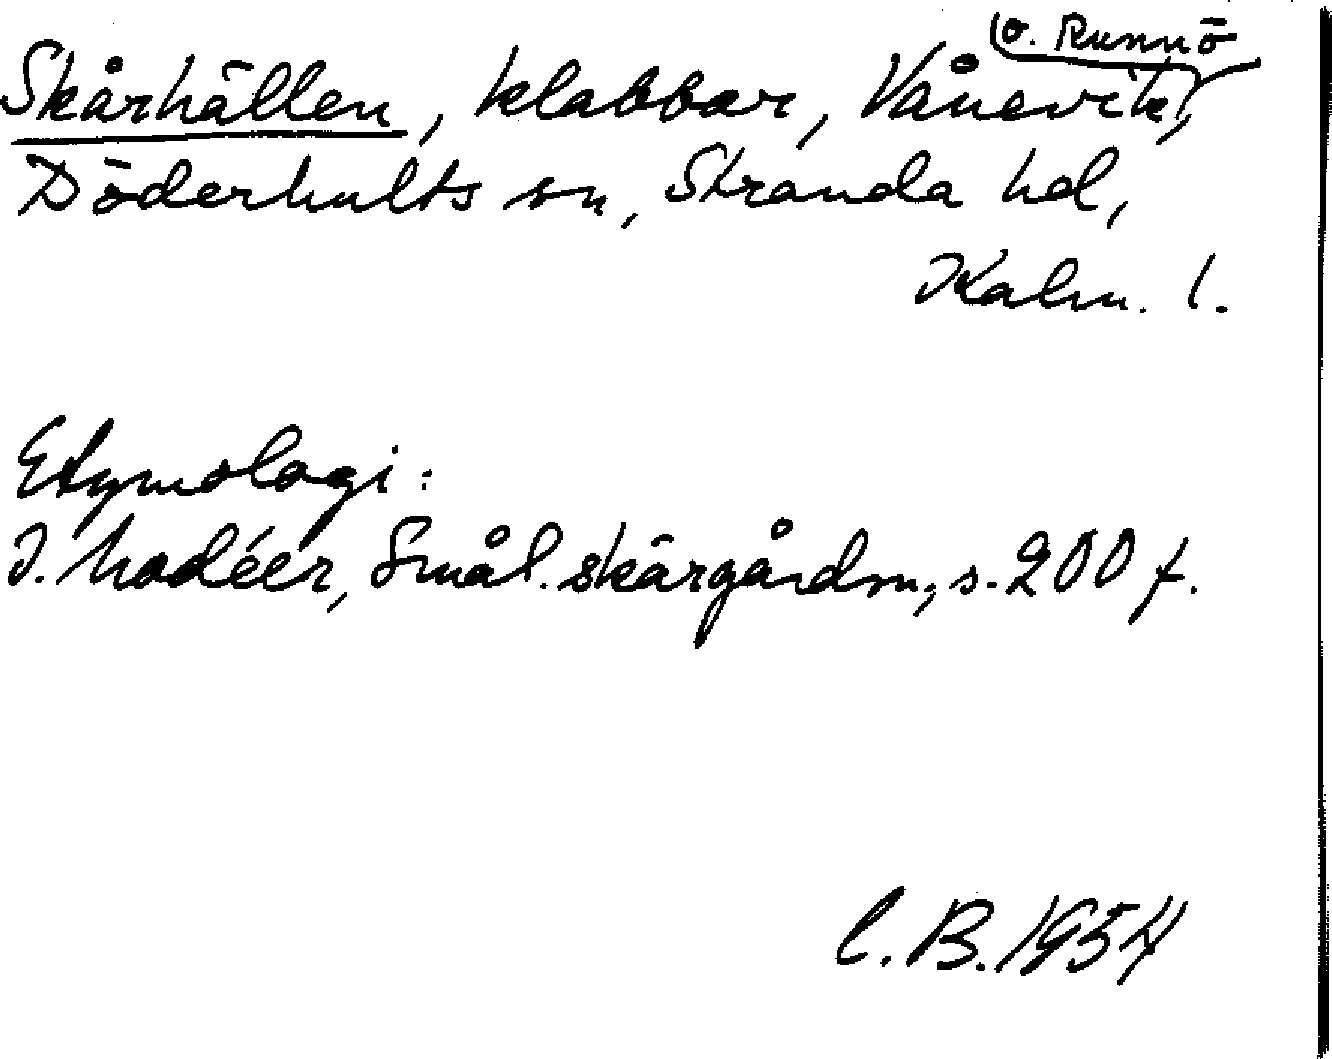 (o. Runnö
Skårhällen, klabbar, Vånevik,
Döderhults sn, Stranda hd,
Kalm. l.
Etymologi:
I. Modéer, Smål. skärgårdsn, s. 200 f.
C. B. 1954